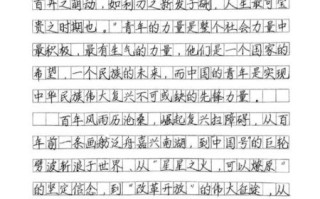 百卉之萌动，如利刃之新发于硎，人生最可宝
贵之时期也。"青年的力量是整个社会力量中
最积极，最有生气的力量，他们是一个国家的
希望，一个民族的未来，而中国的青年是实现
中华民族伟大复兴不可或缺的先锋力量。
百年风雨历沧桑，崛起复兴扫障碍，从百
年前一条画舫泛舟嘉兴南湖，到中国号的巨轮
劈波斩浪于世界，从"星星之火，可以燎原"
的坚定信念，到"改革开放"的伟大征途，从